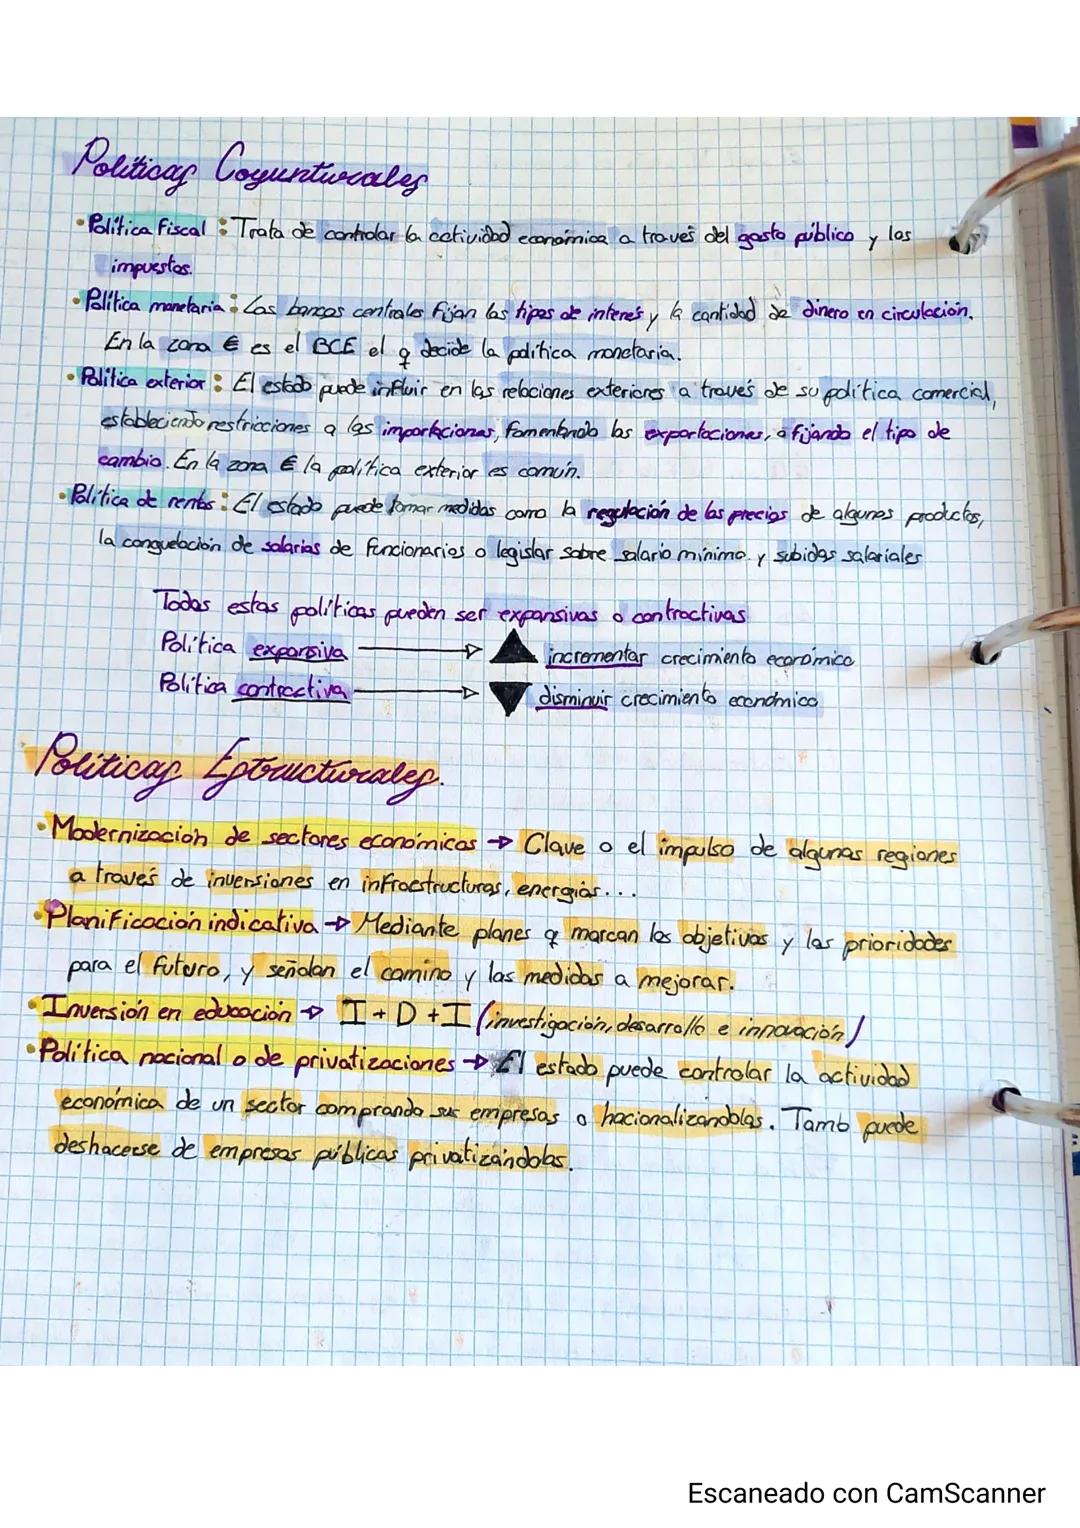 Políticas Coyunturales
• Política fiscal : Trata de controlar la actividad económica a través del gasto público y los
impuestos.
• Política monetaria : Los bancos centrales fijan los tipos de interés y la cantidad de dinero en circulación.
En la zona € es el BCE el q decide la política monetaria.
• Política exterior : El estado puede influir en las relaciones exteriores a través de su política comercial,
estableciendo restricciones a las importaciones, fomentando las exportaciones, o fijando el tipo de
cambio. En la zona € la política exterior es común.
• Política de rentas : El estado puede tomar medidas como la regulación de los precios de algunos productos,
la conguelación de salarios de funcionarios o legislar sobre salario mínimo y subidas salariales
Todas estas políticas pueden ser expansivas o contractivas
Política expansiva → ▲ incrementar crecimiento económico
Política contractiva → ▼ disminuir crecimiento económico
Políticas Estructurales.
• Modernización de sectores económicos → Clave o el impulso de algunas regiones
a través de inversiones en infraestructuras, energías...
• Planificación indicativa → Mediante planes q marcan los objetivos y las prioridades
para el futuro, y señalan el camino y las medidas a mejorar.
• Inversión en educación → I + D + I (investigación, desarrollo e innovación)
• Política nacional o de privatizaciones → El estado puede controlar la actividad
económica de un sector comprando sus empresas o nacionalizandolas. Tamb puede
deshacerse de empresas públicas privatizándolas.
Escaneado con CamScanner